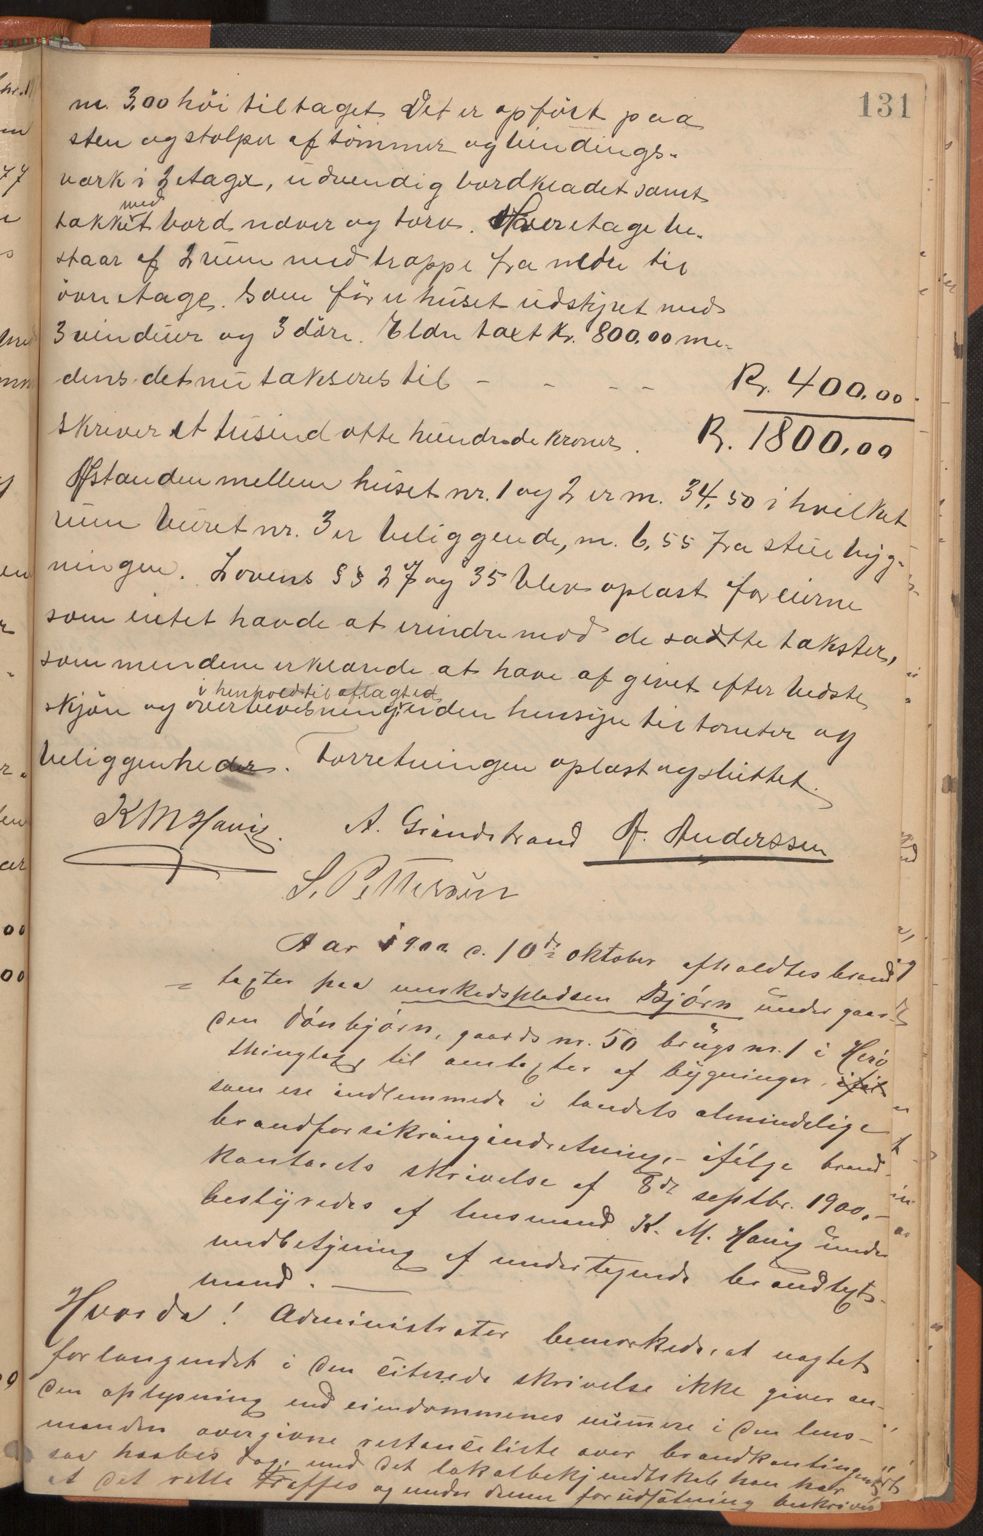 131
m. 3,00 höi til taget. Det er opført paa
sten og stolper af tömmer og bindings-
værk i 2 etage, udvendig bordklædet samt
takket med bord næver og torv. Hver etage be-
staar af 2 rum med trappe fra nedre til
övre etage. Som för er huset udstyret med
3 vinduer og 3 döre. Eldre taxt Kr. 800,00 me-
dens det nu takseres til - - - - Kr. 400,00
skriver et tusind otte hundrede kroner. Kr. 1800,00
Afstanden mellem huset nr. 1 og 2 er m. 34,50 i hvilket
rum buret nr. 3 er beliggende, m. 6,55 fra stue byg-
ningen. Lovens §§ 27 og 35 blev oplæst for eierne
som intet havde at erindre mod de satte takster,
som mændene erklærede at have afgivet efter bedste
skjön og overbevisning i henhold til aflagt ed uden hensyn til tomter og
beliggenheder. Forretningen oplæst og sluttet.
K M Havig. A. Grindstrand A. Anderssen
S. Pettersen
Aar 1900 d. 10de oktober afholdtes brand
taxter paa verkedspladsen Bjørn under gaar-
den Dönbjörn, gaards nr. 50 brugs nr. 1 i Herö
thinglag til omtaxter af bygninger
som ere indlemmede i landets almindelige
brandforsikringsindretning, - ifølge brand-
kontorets skrivelse af 8de septbr. 1900, -
bestyredes af lensmand K. M. Havig under
medbetjening af undertegnede brandtaxt-
mænd. —
Hvorda! Administrator bemærkede, at uagtet
forlangendet i den citerede skrivelse ikke giver an-
den oplysning end eiendommenes numere i den lens-
manden overgivne restanceliste over brandkontingent
saa haabes dog med det lokalbekjendtskab han har
at det rette træffes og under denne forudsætning beskrives